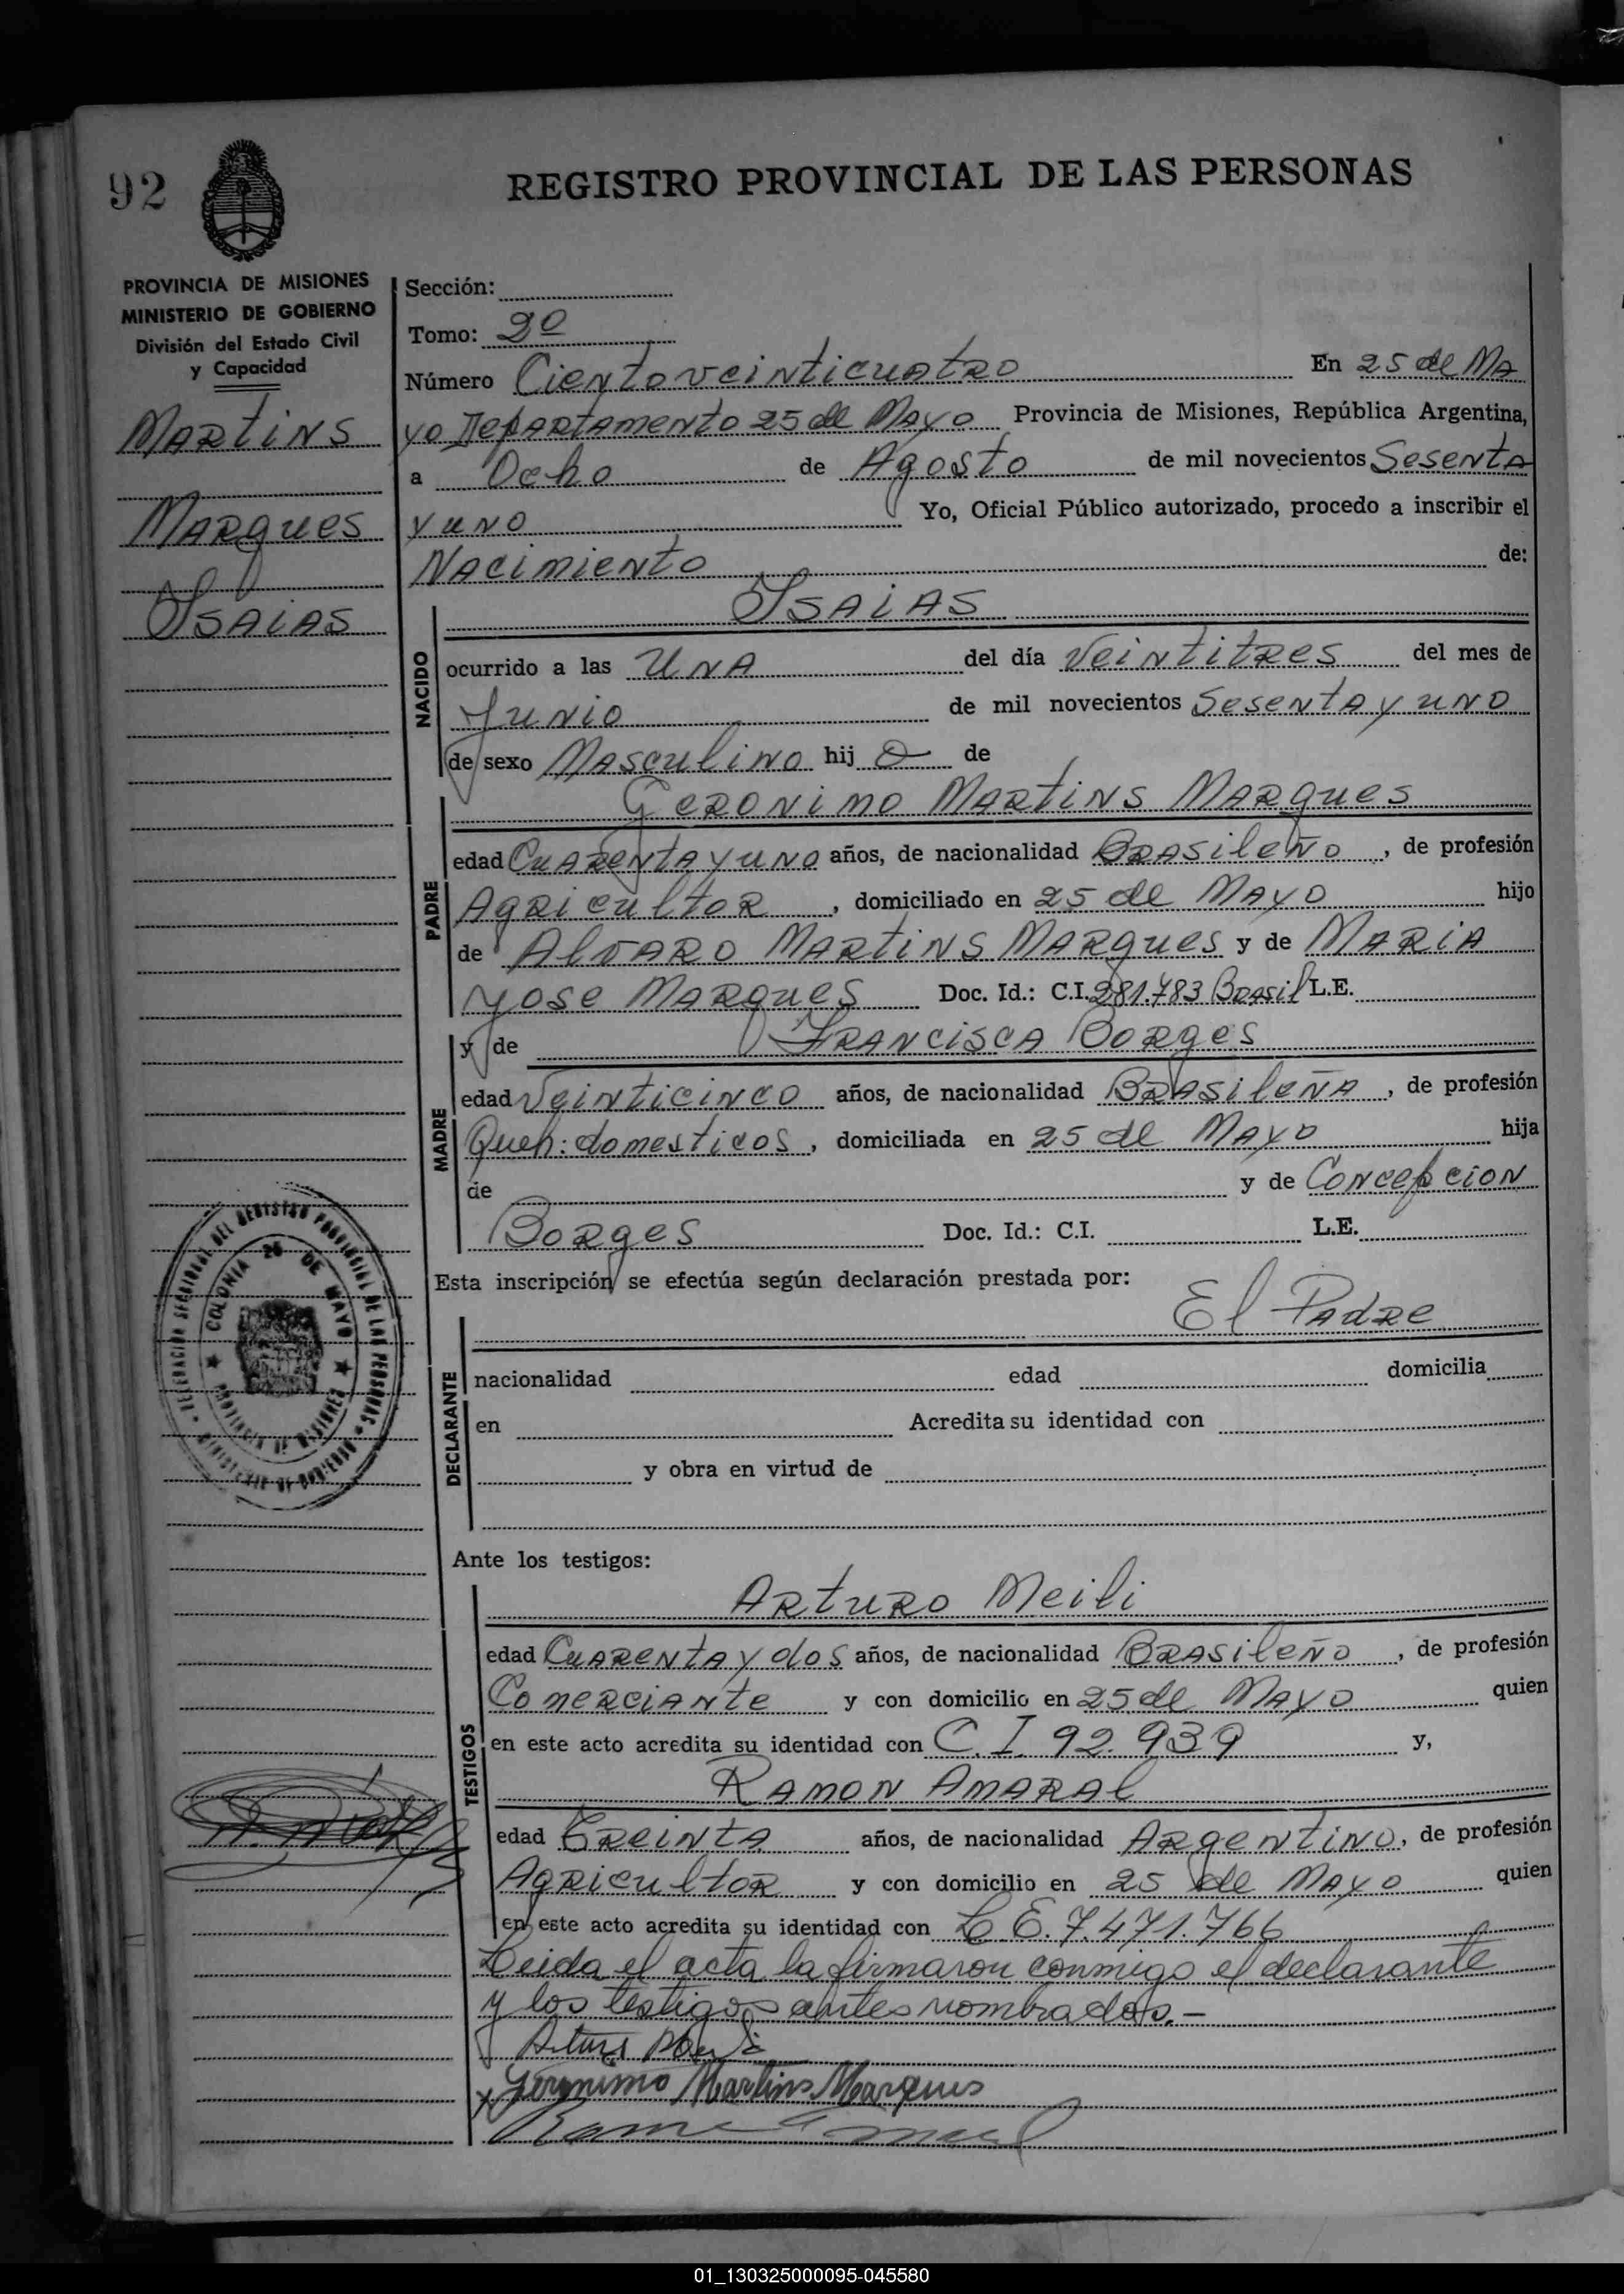 92
REGISTRO PROVINCIAL DE LAS PERSONAS
PROVINCIA DE MISIONES
MINISTERIO DE GOBIERNO
División del Estado Civil
y Capacidad
Martins
Marques
Isaias
Sección:
Tomo: 2º
Número Ciento veinticuatro En 25 de Ma
yo Departamento 25 de Mayo Provincia de Misiones, República Argentina,
a Ocho de Agosto de mil novecientos Sesenta
y uno Yo, Oficial Público autorizado, procedo a inscribir el
Nacimiento de:
Isaias
NACIDO
ocurrido a las Una del día Veintitres del mes de
Junio de mil novecientos Sesenta y uno
de sexo Masculino hij o de
Geronimo Martins Marques
PADRE
edad Cuarenta y uno años, de nacionalidad Brasileño, de profesión
Agricultor, domiciliado en 25 de Mayo hijo
de Alvaro Martins Marques y de Maria
Jose Marques Doc. Id.: C.I. 281.783 Brasil L.E.
y de Francisca Borges
MADRE
edad Veinticinco años, de nacionalidad Brasileña, de profesión
Queh: domesticos, domiciliada en 25 de Mayo hija
de y de Concepcion
Borges Doc. Id.: C.I. L.E.
Esta inscripción se efectúa según declaración prestada por:
El Padre
DECLARANTE
nacionalidad edad domicilia
en Acredita su identidad con
y obra en virtud de
COLONIA 25 DE MAYO
Ante los testigos:
TESTIGOS
Arturo Meili
edad Cuarenta y dos años, de nacionalidad Brasileño, de profesión
Comerciante y con domicilio en 25 de Mayo quien
en este acto acredita su identidad con C. I. 92.939 y,
Ramon Amaral
edad Treinta años, de nacionalidad Argentino, de profesión
Agricultor y con domicilio en 25 de Mayo quien
en este acto acredita su identidad con L.E. 7.471.766
Leida el acta la firmaron conmigo el declarante
y los testigos antes nombrados.-
x Geronimo Martins Marques
01_130325000095-045580